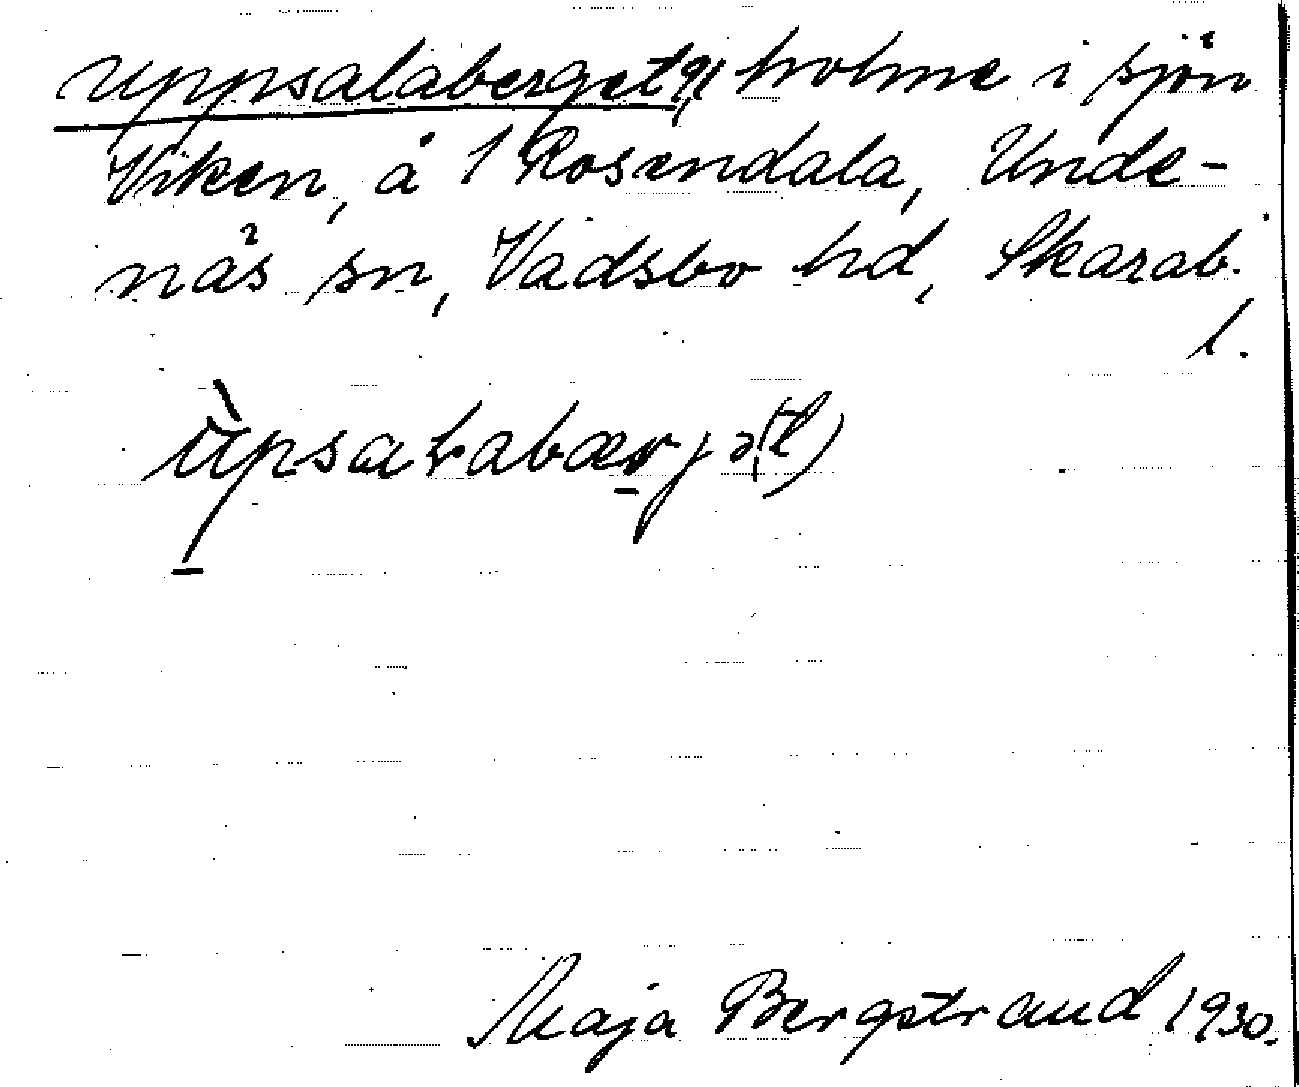 Uppsalaberget, holme i sjön
Viken, å 1 Rosendala, Unde-
näs sn, Vadsbo hd, Skarab.
l.
ùpsaɽabærjə(t)
Maja Bergstrand 1930.